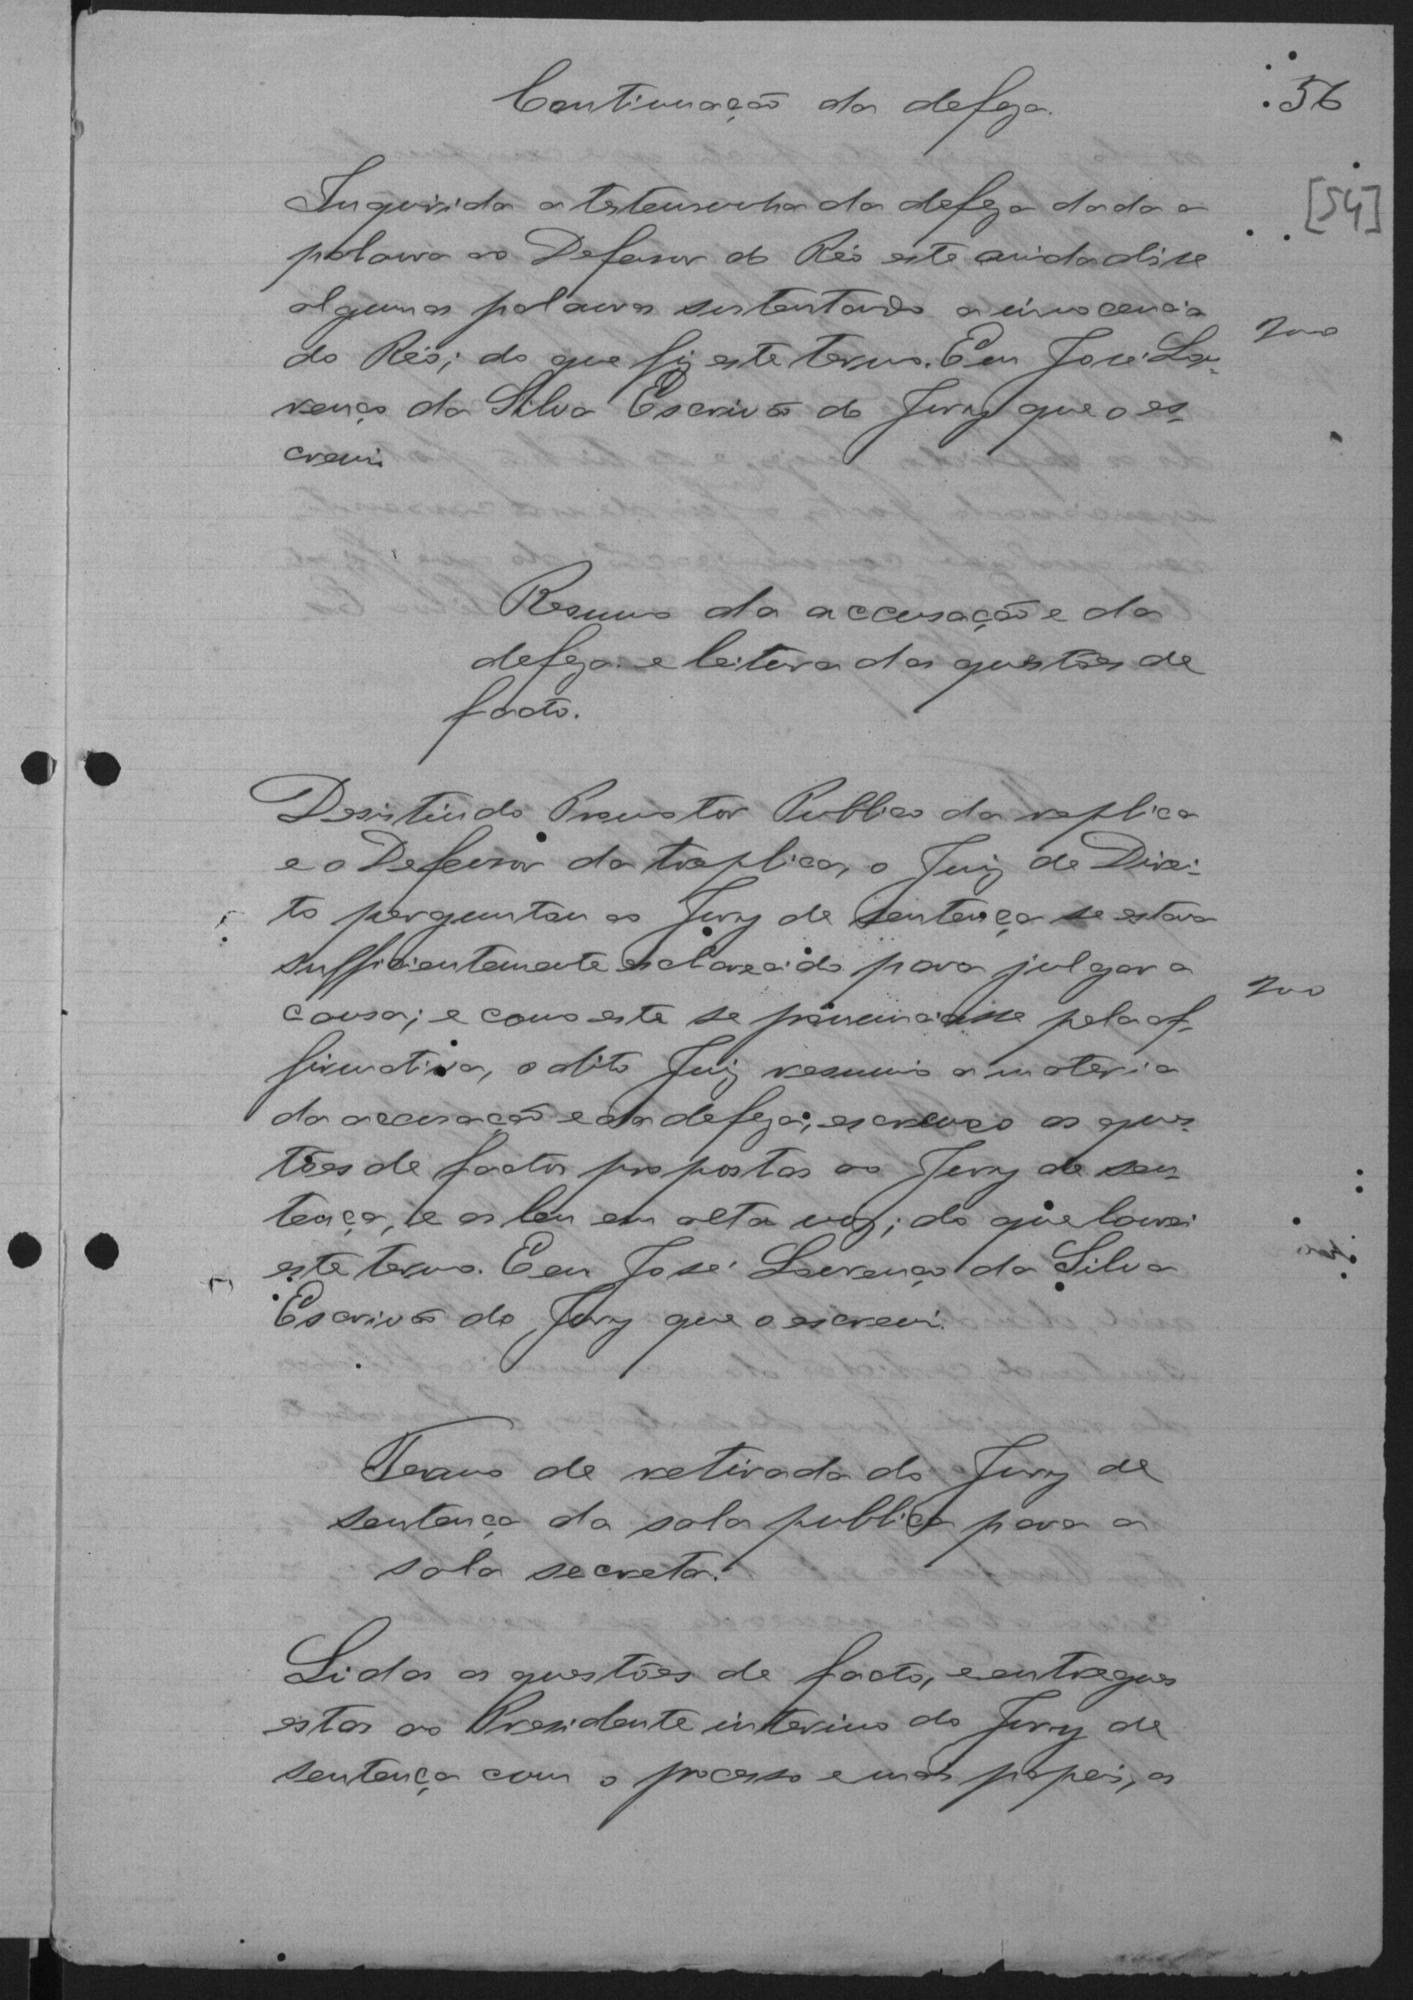 Continuação da defeza.
56
[54]
Inquirida a testemunha da defeza dada a
palavra ao Defensor do Réo este ainda disse
algumas palavras sustentando a innocencia
do Réo; do que fiz este termo. Eu José Lou-
renço da Silva Escrivão do Jury que o es-
crevi
200
Resumo da accusação e da
defeza e leitura das questões de
facto.
Desistindo Promotor Publico da replica
e o Defensor da treplica, o Juiz de Direi-
to perguntou ao Jury de sentença se estava
sufficientemente esclarecido para julgar a
causa; e como este se pronunciasse pela af-
firmativa, o dito Juiz resumio a materia
da accusação e da defeza; escreveo as ques-
tões de factos propostas ao Jury de sen-
tença, e as leu em alta voz; do que lavrei
este termo. Eu José Lourenço da Silva
Escrivão do Jury que o escrevi.
200
Termo de retirada do Jury de
sentença da sala publica para a
sala secreta.
Lidas as questões de facto, e entregues
estas ao Presidente interino do Jury de
sentença com o processo e mais papeis, os